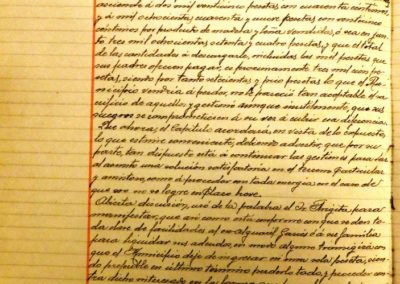 asciende á dos mil veintiuna pesetas con cuarenta céntimos,
y á mil ochocientas cuarenta y nueve pesetas con veintiun
céntimos por producto de madera y leña vendidas, ó sea en jun-
to tres mil ochocientas setenta y cuatro pesetas, y que el total
de las cantidades á descargarle, incluidas las mil pesetas que
sus padres ofrecen pagar, es proximamente tres mil cien pe-
setas, siendo por tanto setecientas y pico pesetas lo que el Mu-
nicipio vendria á perder, no le pareció tan aceptable el sa-
crificio de aquellos y gestionó aunque inutilmente, que sus
suegros se comprometiesen á su vez á cubrir esa diferencia.
Que ahora el Cabildo acordará, en vista de lo expuesto,
lo que estime conveniente, debiendo advertir, que por su
parte, tan dispuesto está á continuar las gestiones para dar
al asunto una solución satisfactoria en el terreno particular
y amistoso, como á proceder con toda energia en el caso de
que esa no se logre en plazo breve.
Abierta discusión, usó de la palabra el Sr. Angita para
manifestar, que así como está conforme con que se den to-
da clase de facilidades al ex-alguacil García ó á su familia
para liquidar sus adeudos, en modo alguno transigirá con
que el Municipio deje de ingresar en una sola peseta, sien-
do preferible en último término perderlo todo, y proceder con-
tra dicho interesado en la forma que